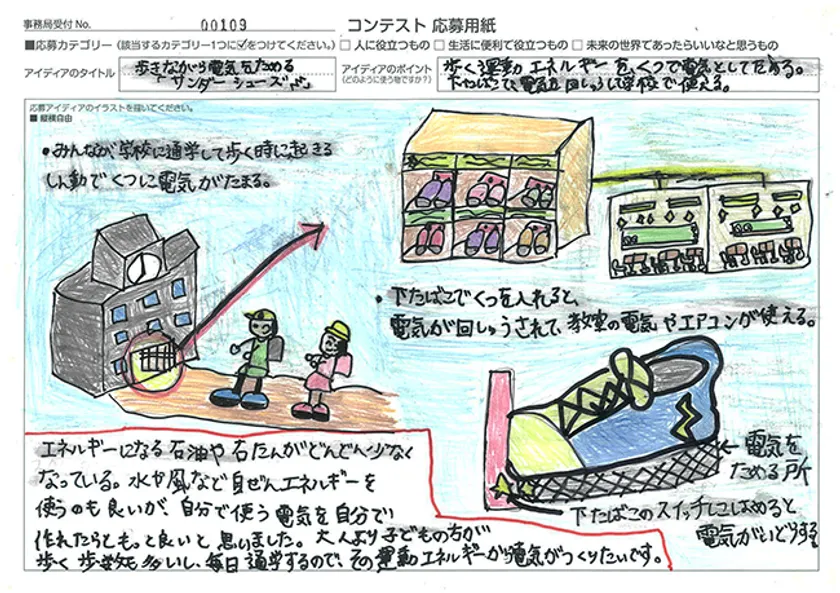 事務局受付 No. 00109
コンテスト 応募用紙
■応募カテゴリー (該当するカテゴリー1つに☑をつけてください。) □ 人に役立つもの □ 生活に便利で役立つもの □ 未来の世界であったらいいなと思うもの
アイディアのタイトル
歩きながら電気をためる
「サンダーシューズ」
アイディアのポイント
(どのように使う物ですか?)
歩く運動エネルギーを、くつで電気としてためる。
下たばこで、電気を回しゅうして学校で使える。
応募アイディアのイラストを描いてください。
■ 縦横自由
・みんなが学校に通学して歩く時に起きる
しん動でくつに電気がたまる。
・下たばこでくつを入れると、
電気が回しゅうされて、教室の電気やエアコンが使える。
← 電気を
ためる所
下たばこのスイッチにはめると
電気がいどうする
エネルギーになる石油や石たんがどんどん少なく
なっている。水や風など自ぜんエネルギーを
使うのも良いが、自分で使う電気を自分で
作れたらもっと良いと思いました。大人より子どもの方が
歩く歩数も多いし、毎日通学するので、その運動エネルギーから電気がつくりたいです。